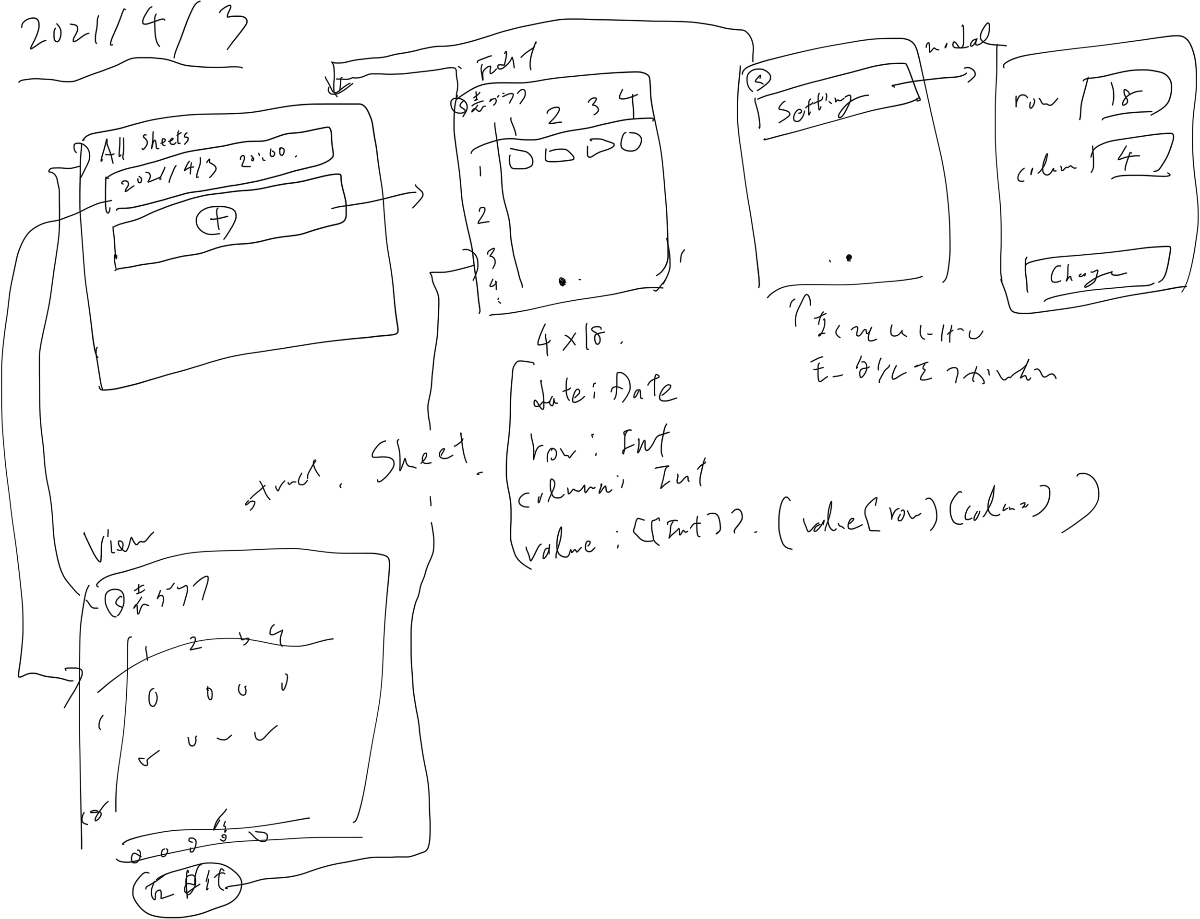 2021/4/3
All Sheets
2021/4/3 20:00.
+
Edit
表 グラフ
1 2 3 4
1
2
3
4
4×18.
Setting
modal
row 18
column 4
Change
モーダルを つかいたい
struct. Sheet.
date: Date
row: Int
column: Int
value: [[Int]]. (value[row][column])
View
表 グラフ
1 2 3 4
1
18
0 0 0 0 0
Edit